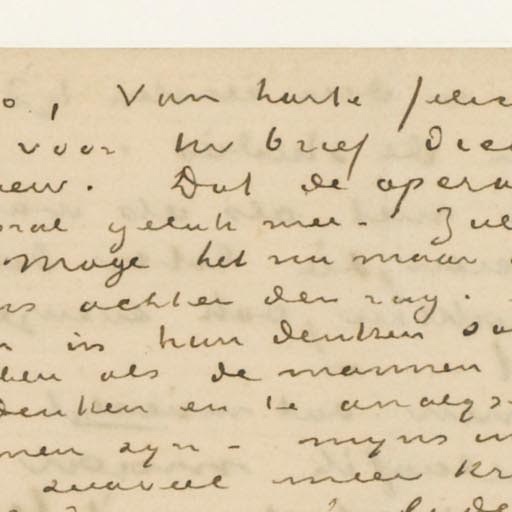 o, Van harte felic
voor Uw brief die
euw. Dat de opera
oral geluk mee. Zul
Moge het nu maar
ns achter den rug.
n in hun denken so
len als de mannen
denken en te analys
men zyn - myns in
zooveel meer kr